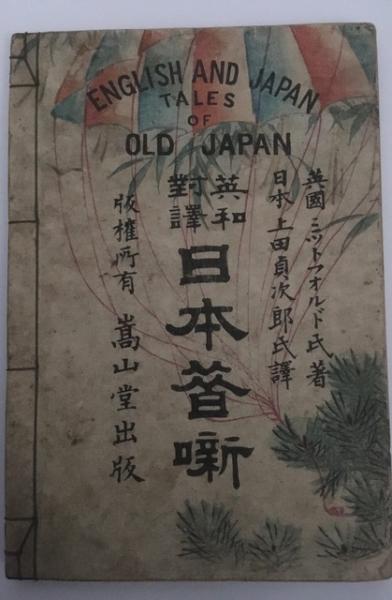 ENGLISH AND JAPAN
TALES
OF
OLD JAPAN
英國ミットフォルド氏著
日本上田貞次郎氏譯
英和
對譯
日本昔噺
版權所有 嵩山堂出版